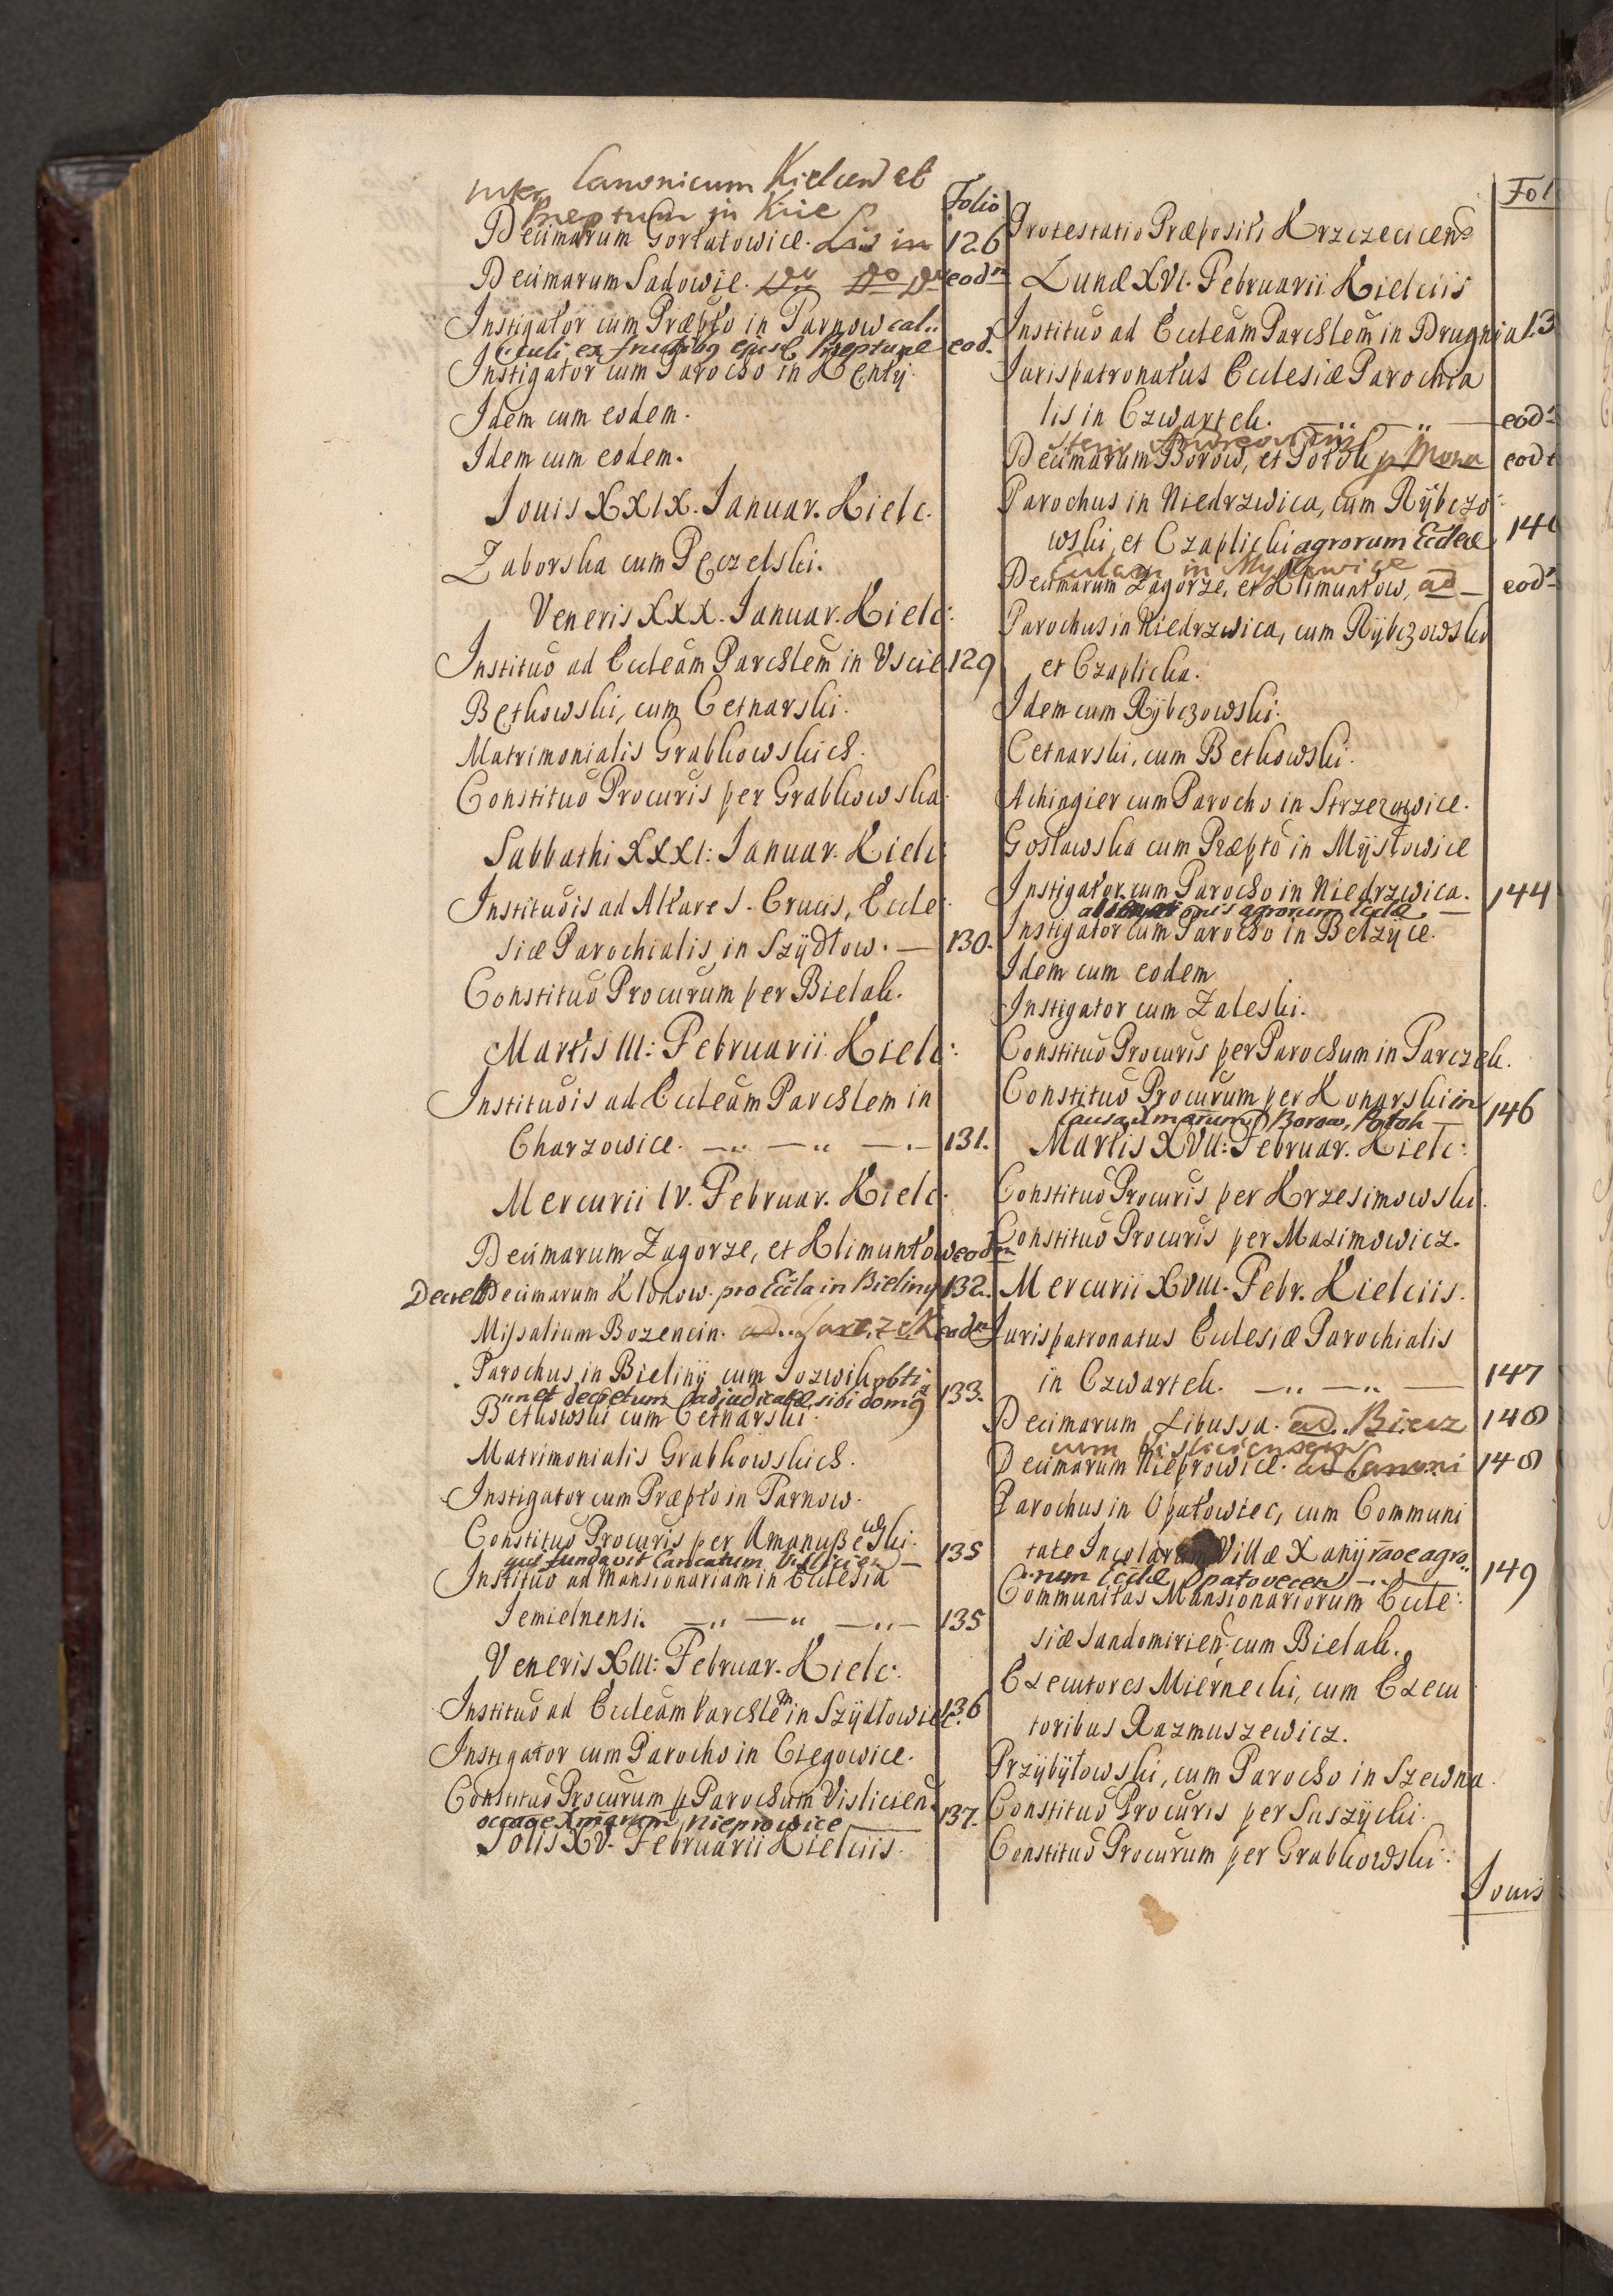 inter Canonicum Kielcen et
Præptum in Kiie
Folio
Decimarum Gorłatowice. Lis in 126
Decimarum Sadowie. Do Do Do eodn
Instigator cum Præpto in Tarnow cal..
culi ex fructibg ejusd Præpturæ eod.
Instigator cum Parocho in Kenty.
Idem cum eodem.
Idem cum eodem.
Jouis XXIX. Januar. Kielc.
Zaborska cum Pęczelski.
Veneris XXX. Januar. Kielc:
Instituo ad Eccleam Parchlem in Vscie 129
Bętkowski, cum Cetnarski.
Matrimonialis Grabkowskich.
Constituo Procuris per Grabkowska.
Sabbathi XXXI: Januar. Kielc:
Instituois ad Altare S. Crucis, Eccle
siæ Parochialis in Szÿdłow. — 130.
Constituo Procurum per Bielak.
Martis III: Februarii Kielc:
Instituois ad Eccleam Parchlem in
Charzowice. —..— —..— —.— 131.
Mercurii IV. Februar. Kielc.
Decimarum Zagorze, et Klimuntow eodm
Decret Decimarum Klonow. pro Eccla in Bieliny 132.
Missalium Bozencin. ad.. Jarezek eodn
Parochus in Bielinÿ cum Jozwik obti
unet decretum adjudicatæ sibi domg 133.
Bethowski cum Cetnarski.
Matrimonialis Grabkowskich.
Instigator cum Præpto in Tarnow.
Constituo Procuris per Amanußewski.
qui fundavit Cancatum Vislicien — 135
Instituo ad Mansionariam in Ecclesia
Jemielnensi. —..— —..— —..— 135
Veneris XIII: Februar. Kielc.
Instituo ad Eccleam Parchlem in Szÿdłowiec. 136
Instigator cum Parocho in Cięgowice.
Constituo Procurum p Parochum Vislicien
occaoe Xmarum Nieprowice 137.
Solis XV. Februarii Kielciis.
Fol
Protestatio Præpositi Krzczecicens
Lunæ XVI. Februarii Kielciis
Instituo ad Eccleam Parchlem in Drugnia 13
Jurispatronatus Ecclesiæ Parochia
lis in Czwartek. —..— —..— eodn
Steri Andreovien
Decimarum Borow, et Potok p Mona eod
Parochus in Niedrzwica, cum Rÿbczo:
wski et Czaplicki agrorum Eccleæ 140
Eculam in Mysłowice
Decimarum Zagorze, et Klimuntow, ad — eodn
Parochus in Niedrzwica, cum Rÿbczowski
et Czaplicka.
Idem cum Rÿbczowski.
Cetnarski, cum Bethowski.
Achingier cum Parocho in Strzeżowice.
Gosławska cum Præpto in Mÿsłowice
Instigator cum Parocho in Niedrzwica.
alienationis agrorum Ecclæ — 144
Instigator cum Parocho in Bełzÿce.
Idem cum eodem
Instigator cum Zaleski.
Constituo Procuris per Parochum in Parczek.
Constituo Procurum per Konarski in
causa Xmarum Borow, Potok — 146
Martis XVII: Februar. Kielc:
Constituo Procuris per Krzesimowski.
Constituo Procuris per Maximowicz.
Mercurii XVIII. Febr. Kielciis.
Jurispatronatus Ecclesiæ Parochialis
in Czwartek. —..— —..— — 147
Decimarum Libussa. ad.. Biecz 148
cum Visliciensem
Decimarum Nieprowice. ad Canoni 148
Parochus in Opatowiec, cum Communi
tate Incolarum Villæ Xanÿ raoe agro..
..rum Ecclæ Opatovecen —..— 149
Communitas Mansionariorum Eccle:
siæ Sandomirien cum Bielak.
Executores Miernecki, cum Execu
toribus Razmuszewicz.
Przÿbÿłowski, cum Parocho in Szewna.
Constituo Procuris per Suszÿcki.
Constituo Procurum per Grabkowski:
Jouis